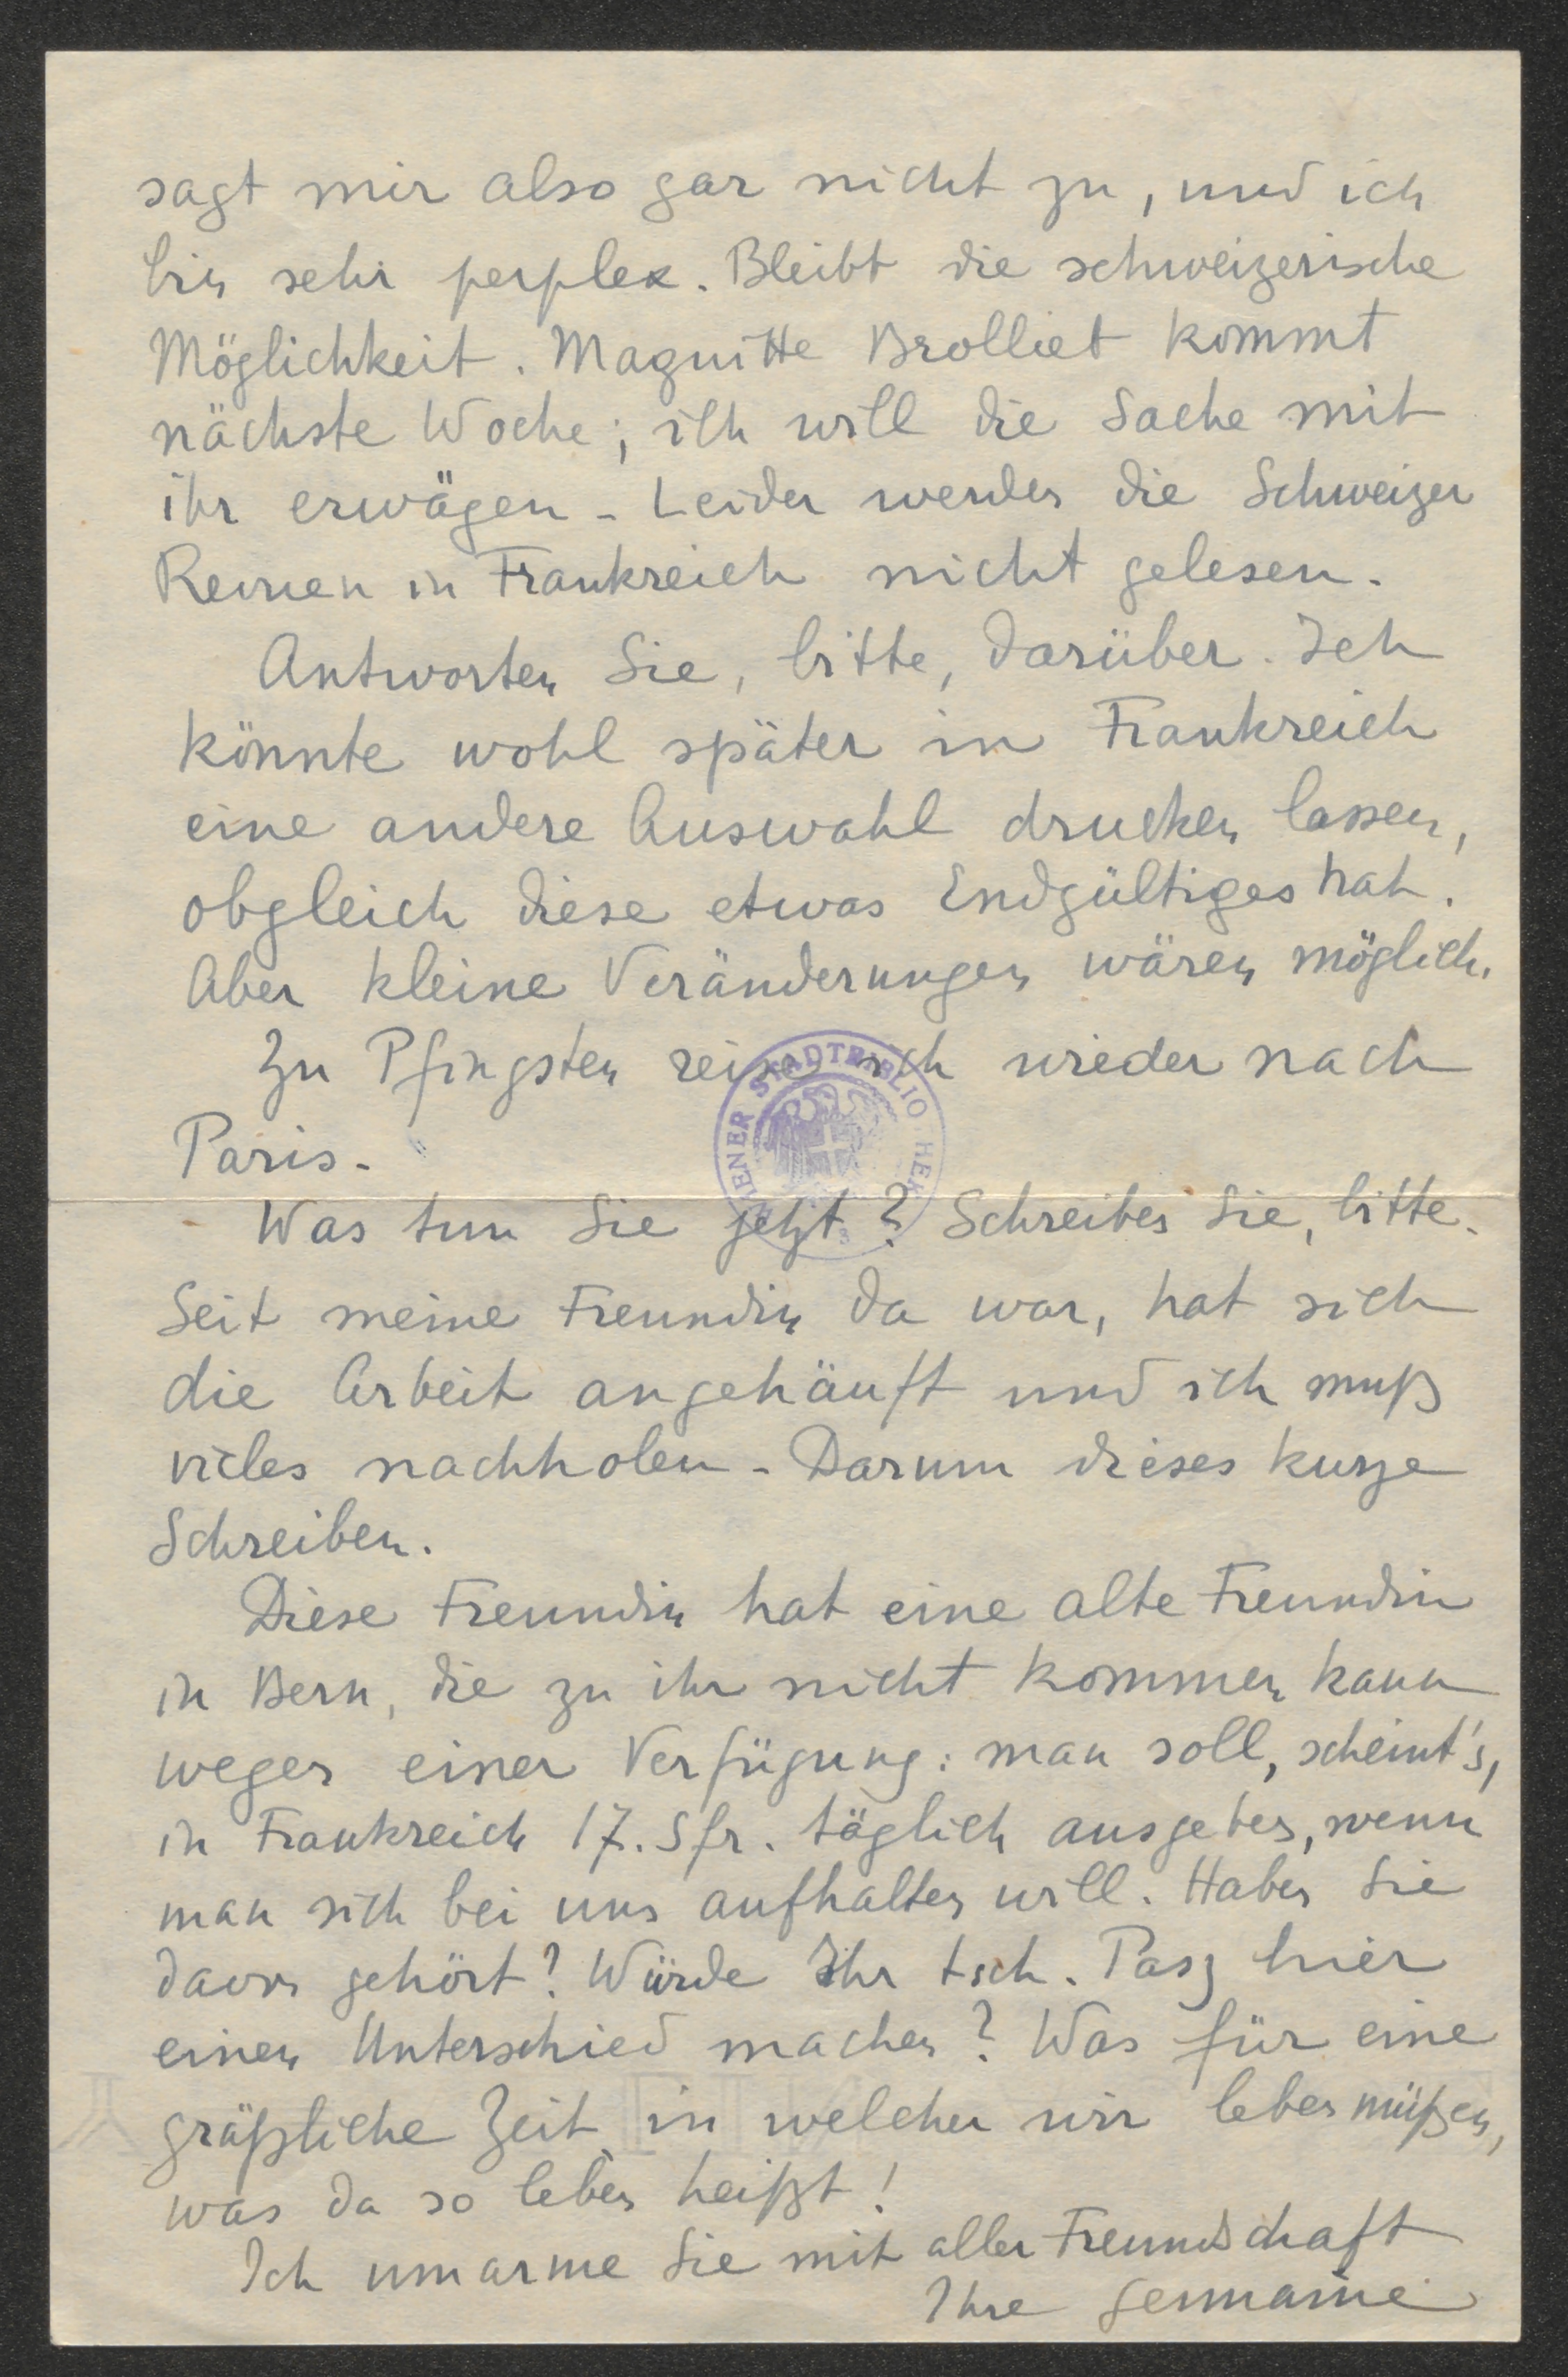 sagt mir also gar nicht zu, und ich
bin sehr perplex. Bleibt die schweizerische
Möglichkeit. Maguitte Brolliet kommt
nächste Woche; ich will die Sache mit
ihr erwägen - Leider werden die Schweizer
Revuen in Frankreich nicht gelesen.
Antworten Sie, bitte, darüber. Ich
könnte wohl später in Frankreich
eine andere Auswahl drucken lassen,
obgleich diese etwas Endgültiges hat.
Aber kleine Veränderungen wären möglich.
Zu Pfingsten reise ich wieder nach
Paris.
WIENER STADTBIBLIOTHEK
Was tun Sie jetzt? Schreiben Sie, bitte.
Seit meine Freundin da war, hat sich
die Arbeit angehäuft und ich muß
vieles nachholen - Darum dieses kurze
Schreiben.
Diese Freundin hat eine alte Freundin
in Bern, die zu ihr nicht kommen kann
wegen einer Verfügung: man soll, scheint's,
in Frankreich 17. Sfr. täglich ausgeben, wenn
man sich bei uns aufhalten will. Haben Sie
davon gehört? Würde Ihr tsch. Pasz hier
einen Unterschied machen? Was für eine
gräßliche Zeit in welcher wir leben müßen,
was da so leben heißt!
Ich umarme Sie mit aller Freundschaft
Ihre Germaine